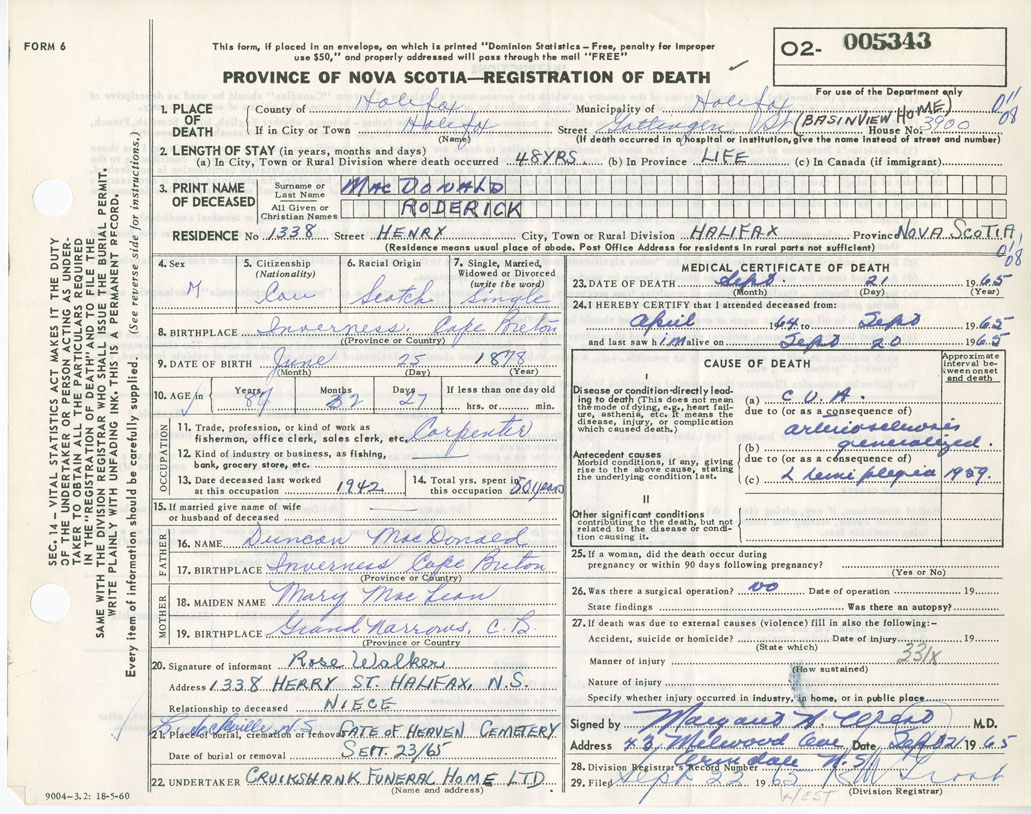 FORM 6
This form, if placed in an envelope, on which is printed "Dominion Statistics – Free, penalty for improper
use $50," and properly addressed will pass through the mail "FREE"
PROVINCE OF NOVA SCOTIA—REGISTRATION OF DEATH
02- 005343
For use of the Department only
1. PLACE OF DEATH
County of Halifax Municipality of Halifax
If in City or Town Halifax Street Gottengen St (BASINVIEW HOME) House No. 3900
(Name) (If death occurred in a hospital or institution, give the name instead of street and number)
011
08
2. LENGTH OF STAY (in years, months and days)
(a) In City, Town or Rural Division where death occurred 48YRS. (b) In Province LIFE (c) In Canada (if immigrant)
3. PRINT NAME OF DECEASED
Surname or Last Name MACDONALD
All Given or Christian Names RODERICK
RESIDENCE No. 1338 Street HENRY City, Town or Rural Division HALIFAX Province NOVA SCOTIA
(Residence means usual place of abode. Post Office Address for residents in rural parts not sufficient)
4. Sex M
5. Citizenship (Nationality) Can
6. Racial Origin Scotch
7. Single, Married, Widowed or Divorced (write the word) Single
8. BIRTHPLACE Inverness. Cape Breton
(Province or Country)
9. DATE OF BIRTH June 25 1878
(Month) (Day) (Year)
10. AGE in Years Months Days 27 If less than one day old
hrs. or min.
OCCUPATION
11. Trade, profession, or kind of work as
fisherman, office clerk, sales clerk, etc. Carpenter
12. Kind of industry or business, as fishing,
bank, grocery store, etc.
13. Date deceased last worked
at this occupation 1942
14. Total yrs. spent in
this occupation years
15. If married give name of wife
or husband of deceased
FATHER
16. NAME Duncan MacDonald
17. BIRTHPLACE Inverness Cape Breton
(Province or Country)
MOTHER
18. MAIDEN NAME Mary MacLean
19. BIRTHPLACE Grand Narrows, C.B.
(Province or Country)
20. Signature of informant Rose Walker
Address 1338 HERRY ST. HALIFAX, N.S.
Relationship to deceased NIECE
L. Sackville N.S
21. Place of burial, cremation or removal GATE OF HEAVEN CEMETERY
Date of burial or removal SEPT. 23/65
22. UNDERTAKER CRUIKSHANK FUNERAL HOME LTD.
(Name and address)
9004–3.2: 18-5-60
MEDICAL CERTIFICATE OF DEATH
08
23. DATE OF DEATH Sept. 21 1965
(Month) (Day) (Year)
24. I HEREBY CERTIFY that I attended deceased from:
April 1964 to Sept 1965
and last saw him alive on Sept 20 1965
CAUSE OF DEATH
Approximate interval between onset and death
I
Disease or condition directly leading to death (This does not mean the mode of dying, e.g., heart failure, asthenia, etc. It means the disease, injury, or complication which caused death.)
(a) C.V.A.
due to (or as a consequence of)
Antecedent causes
Morbid conditions, if any, giving rise to the above cause, stating the underlying condition last.
(b) generalized.
due to (or as a consequence of)
(c) L hemiplegia 1959.
II
Other significant conditions
contributing to the death, but not related to the disease or condition causing it.
25. If a woman, did the death occur during
pregnancy or within 90 days following pregnancy?
(Yes or No)
26. Was there a surgical operation? no Date of operation 19
State findings Was there an autopsy?
27. If death was due to external causes (violence) fill in also the following:–
Accident, suicide or homicide? Date of injury 19
(State which)
331X
Manner of injury
(How sustained)
Nature of injury
Specify whether injury occurred in industry, in home, or in public place
Signed by Margaret M.D.
Address 43, Melwood Ave, Date Sept 21 1965
Armdale N.S.
28. Division Registrar's Record Number
29. Filed Sept 22 1965
(Division Registrar)
WEST
SEC. 14 – VITAL STATISTICS ACT MAKES IT THE DUTY
OF THE UNDERTAKER OR PERSON ACTING AS UNDERTAKER TO OBTAIN ALL THE PARTICULARS REQUIRED
IN THE "REGISTRATION OF DEATH" AND TO FILE THE
SAME WITH THE DIVISION REGISTRAR WHO SHALL ISSUE THE BURIAL PERMIT.
WRITE PLAINLY WITH UNFADING INK. THIS IS A PERMANENT RECORD.
Every item of information should be carefully supplied. (See reverse side for instructions.)